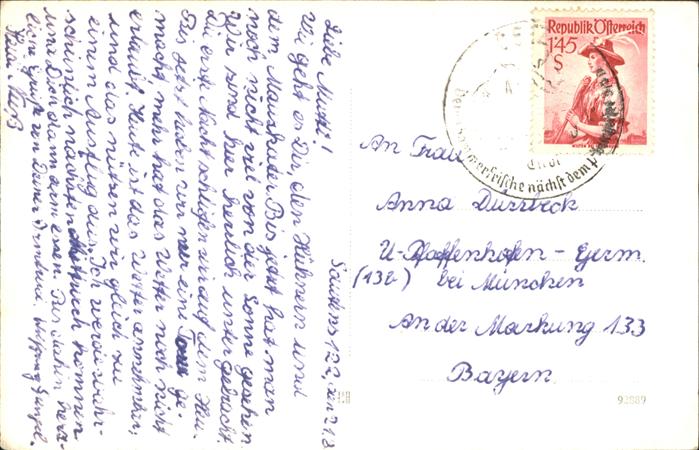 Sautens 122, den 2.8
Liebe Mutti!
Wie geht es Dir, den Hühnern und
dem Mauskater Bis jetzt hat man
noch nicht viel von der Sonne gesehen
Wir sind hier herrlich untergebracht.
Die erste Nacht schliefen wir auf dem Heu
Bis jetzt haben wir nur eine Tour ge-
macht, mehr hat das Wetter noch nicht
erlaubt. Heute ist das Wetter annehmbar,
und das nützen wir gleich zu
einem Ausflug aus. Ich werde wahr-
scheinlich nächsten Mittwoch kommen
und Dich dann arm essen. Bis dahin herz-
liche Grüße von Deiner
Republik Österreich
145
S
Tirol
An Frau
Anna Durbeck
U-Pfaffenhofen - Germ.
(13b) bei München
An der Markung 133
Bayern
92889